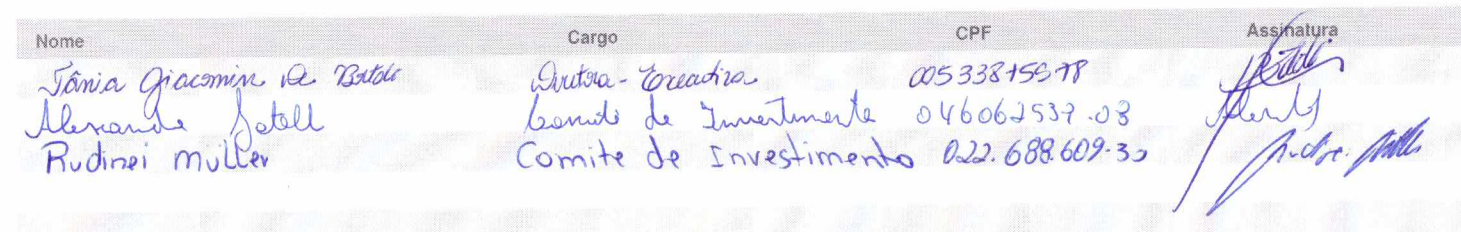 Nome Cargo CPF Assinatura
Tânia Giacomin De Bortoli Diretora-Executiva 00533815578
Alexandre Comite de Investimento 046062537.03
Rudinei Muller Comite de Investimento 022.688.609-30